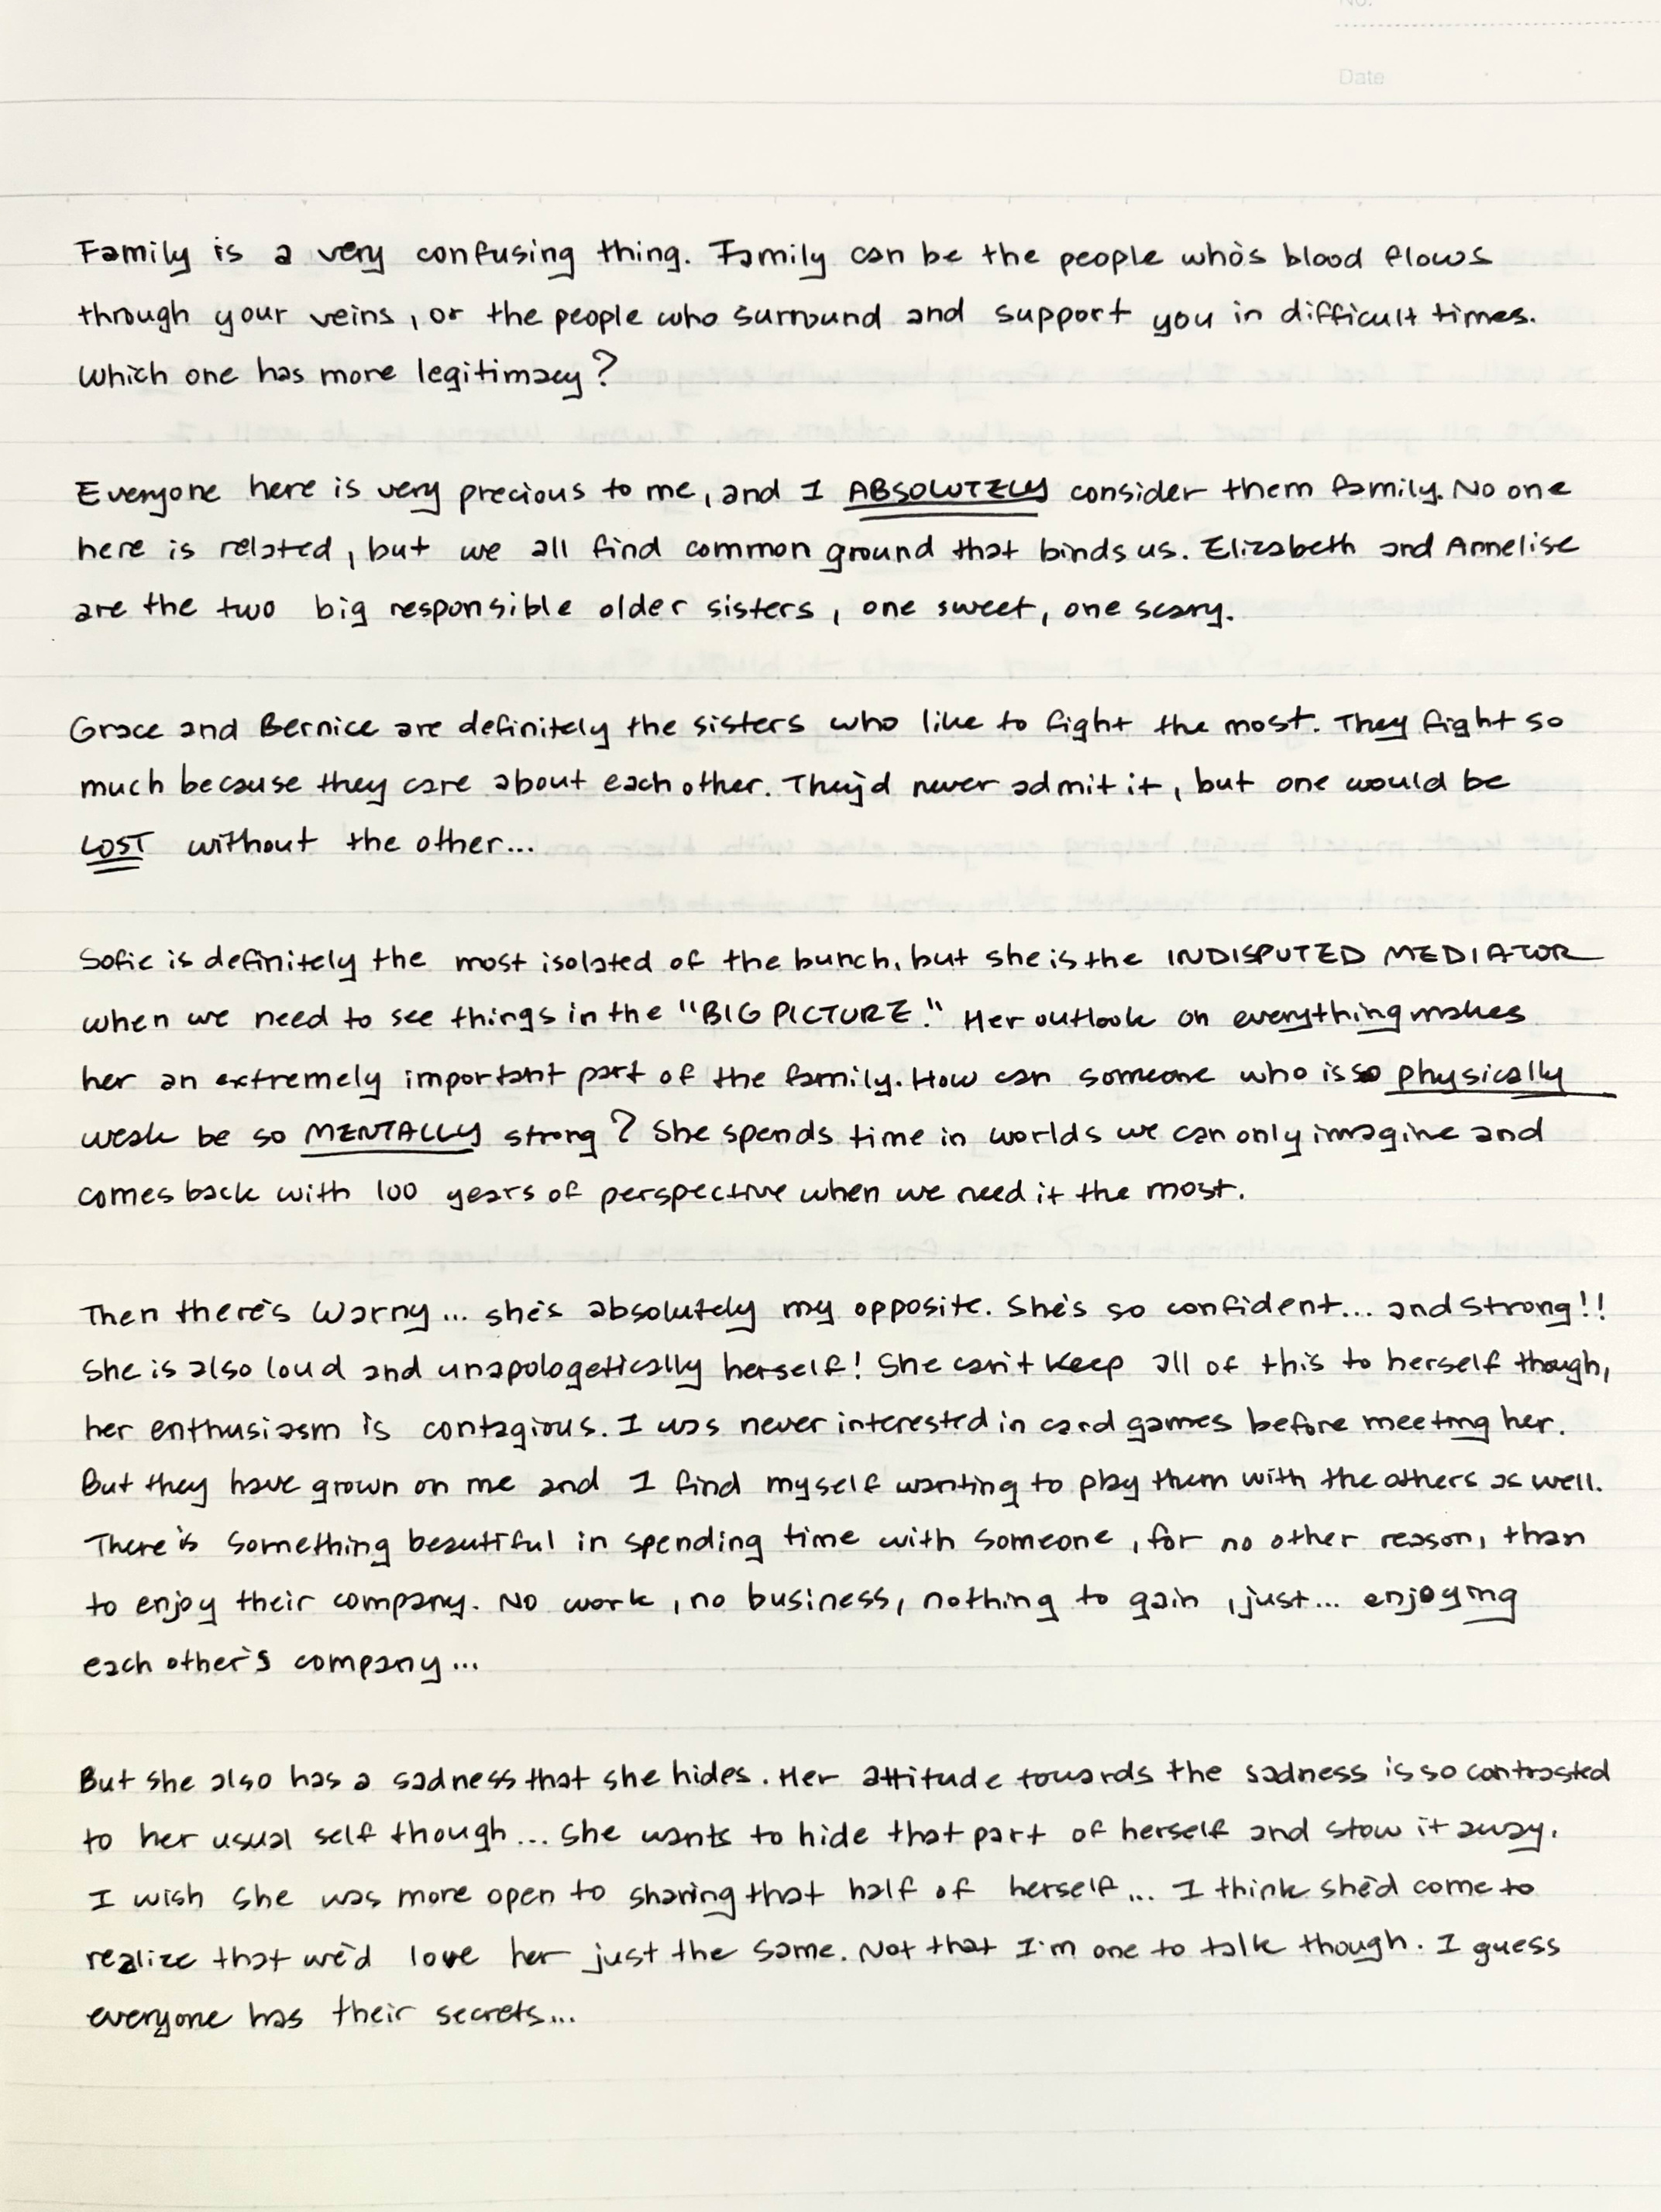 No.
Date
Family is a very confusing thing. Family can be the people who's blood flows
through your veins, or the people who surround and support you in difficult times.
Which one has more legitimacy?
Everyone here is very precious to me, and I ABSOLUTELY consider them family. No one
here is related, but we all find common ground that binds us. Elizabeth and Annelise
are the two big responsible older sisters, one sweet, one scary.
Grace and Bernice are definitely the sisters who like to fight the most. They fight so
much because they care about each other. They'd never admit it, but one would be
LOST without the other...
Sofie is definitely the most isolated of the bunch, but she is the INDISPUTED MEDIATOR
when we need to see things in the "BIG PICTURE." Her outlook on everything makes
her an extremely important part of the family. How can someone who is so physically
weak be so MENTALLY strong? She spends time in worlds we can only imagine and
comes back with 100 years of perspective when we need it the most.
Then there's Warny... she's absolutely my opposite. She's so confident... and strong!!
She is also loud and unapologetically herself! She can't keep all of this to herself though,
her enthusiasm is contagious. I was never interested in card games before meeting her.
But they have grown on me and I find myself wanting to play them with the others as well.
There is something beautiful in spending time with someone, for no other reason, than
to enjoy their company. No work, no business, nothing to gain, just... enjoying
each other's company...
But she also has a sadness that she hides. Her attitude towards the sadness is so contrasted
to her usual self though... She wants to hide that part of herself and stow it away.
I wish she was more open to sharing that half of herself... I think she'd come to
realize that we'd love her just the same. Not that I'm one to talk though. I guess
everyone has their secrets...